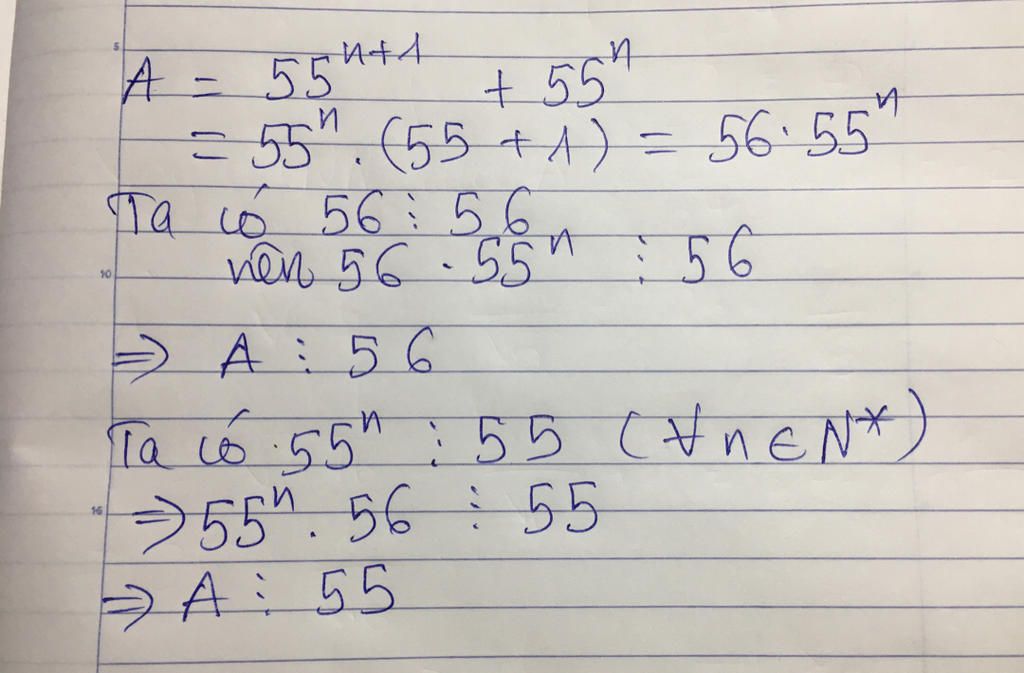 5
A = 55^{n+1} + 55^n
= 55^n . (55 + 1) = 56 . 55^n
Ta có 56 ⋮ 56
10 nên 56 . 55^n ⋮ 56
⇒ A ⋮ 56
Ta có . 55^n ⋮ 55 (∀n ∈ N*)
16 ⇒ 55^n . 56 ⋮ 55
⇒ A ⋮ 55